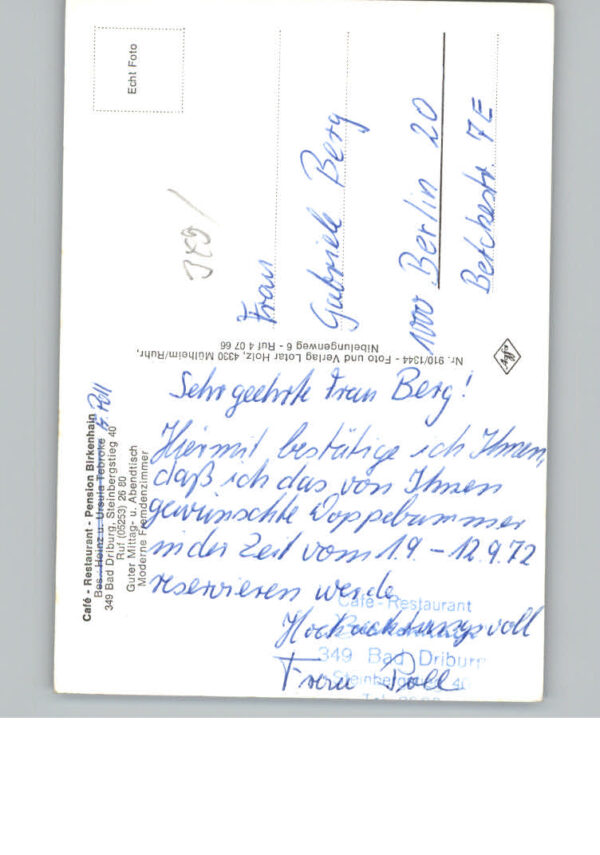 Café - Restaurant - Pension Birkenhain
Bes. Heinz u. Ursula Tebroke G. Poll
349 Bad Driburg, Steinbergstieg 40
Ruf (05253) 26 80
Guter Mittag- u. Abendtisch
Moderne Fremdenzimmer
Sehr geehrte Frau Berg!
Hiermit bestätige ich Ihnen,
daß ich das von Ihnen
gewünschte Doppelzimmer
in der Zeit vom 1.9. - 12.9.72
reservieren werde
Hochachtungsvoll
Frau Poll
Café-Restaurant
349 Bad Driburg
Steinbergstieg 40
Nr. 910/1344 - Foto und Verlag Lotar Holz, 4330 Mülheim/Ruhr,
Nibelungenweg 6 - Ruf 4 07 66
Agfa
Echt Foto
Frau
Gabriele Berg
1000 Berlin 20
Betckestr. 7E